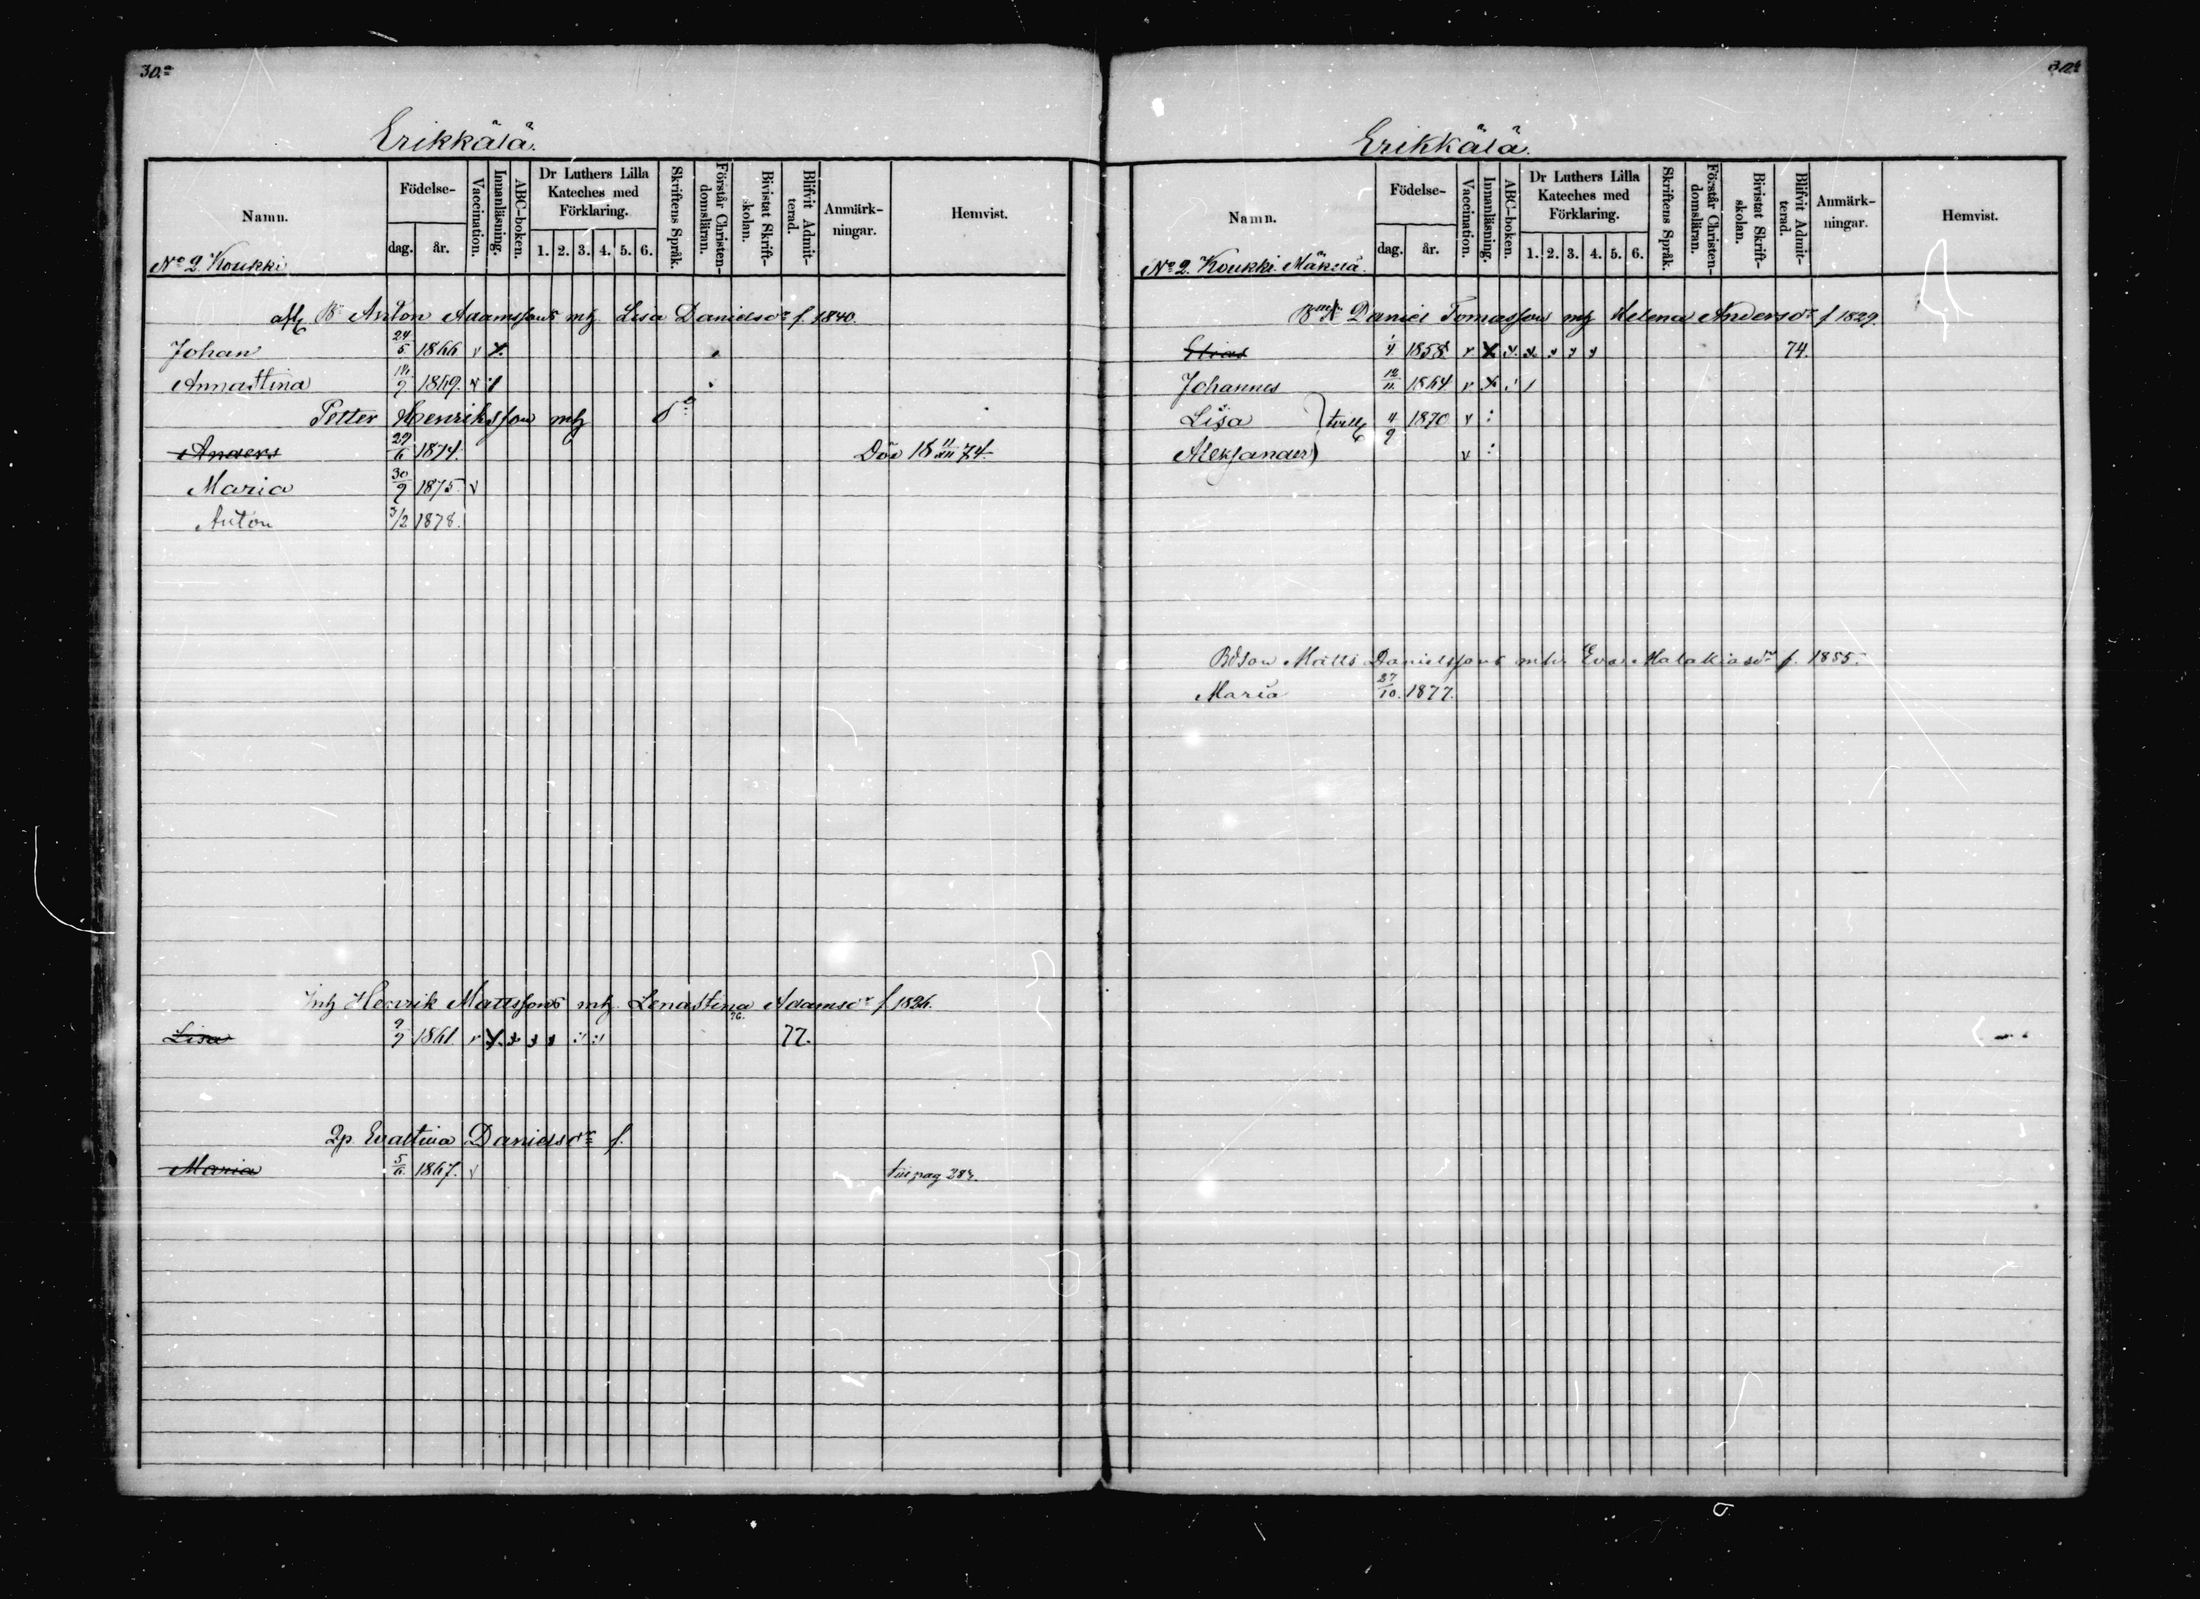 30.a
Erikkälä.
Namn. Födelse- dag. år. Vaccination. Innanläsning. ABC-boken. Dr Luthers Lilla Kateches med Förklaring. 1. 2. 3. 4. 5. 6. Skriftens Språk. Förstår Christendomsläran. Bivistat Skriftskolan. Blifvit Admitterad. Anmärkningar. Hemvist.
No 2 Koukki
afl. Bd Anton Adamssons mh Lisa Danielsdr f. 1840.
Johan 24/5 1866 v x.
Annastina 9 1869. v
Petter Henriksson mh do
Anders 29/6 1874. Död 18 11/XII 74.
Maria 30/9 1875. v
Anton 3/2 1878.
Inh Henrik Mattssons mh. Lenastina Adamsdr f. 1826.
76.
Lisa 9/9 1861 v x x x x 77.
Qp. Evastina Danielsdr f.
Maria 5/6 1867. v
Erikkälä.
Namn. Födelse- dag. år. Vaccination. Innanläsning. ABC-boken. Dr Luthers Lilla Kateches med Förklaring. 1. 2. 3. 4. 5. 6. Skriftens Språk. Förstår Christendomsläran. Bivistat Skriftskolan. Blifvit Admitterad. Anmärkningar. Hemvist.
No 2. Koukki. Mäkelä.
Daniel Tomasson mh Helena Andersdr f 1829.
Elias 1/4 1858. v x x. x. 74.
Johannes 12/11 1864 v x
Lisa tvill 4/9 1870 v :
Aleksander v :
Bdson Matts Danielssons mh. Eva Malakiasdr f. 1855.
Maria 27/10. 1877.